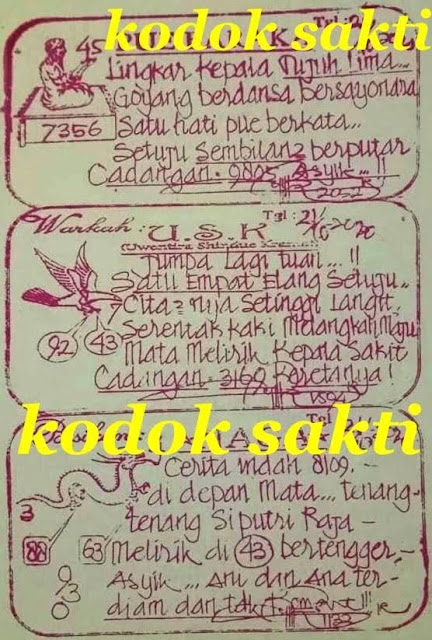 kodok sakti
45
Lingkar Kepala Tujuh Lima...
Goyang berdansa Bersayonara
7356
Satu hati pue berkata...
Setuju Sembilan2 berputar
Cadangan - 9805 Asyik...!!
Warkah : U.S.K Tgl : 21/
Jumpa Lagi Tuan...!!
Satu Empat Elang Setuju..
Cita2 nya Setinggi Langit
92 43
Serentak kaki Melangkah Maju
Mata Melirik Kepala Sakit
Cadangan - 3169
kodok sakti
Cerita indah 8109.-
di depan Mata... tenang-
3
tenang Siputri Raja -
88 63
Melirik di 43 bertengger.-
Asyik... Anu dan Ana ter-
diam dan